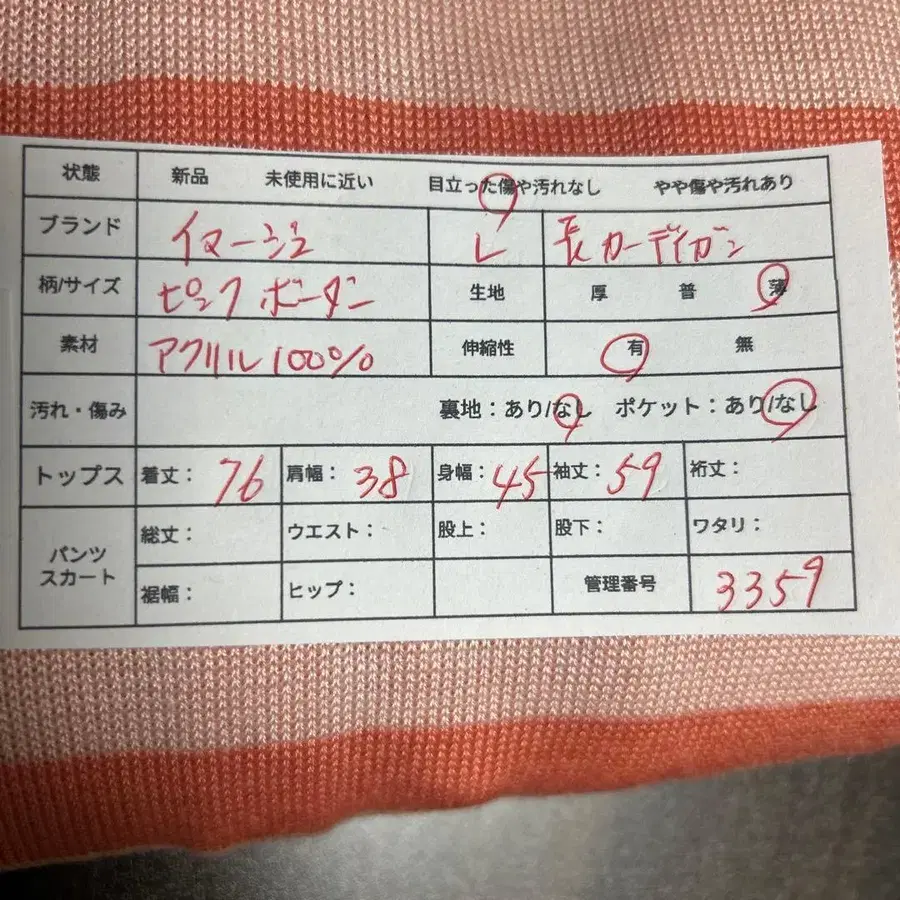 状態 新品 未使用に近い 目立った傷や汚れなし やや傷や汚れあり
ブランド イマージュ L 長カーディガン
柄/サイズ ピンク ボーダー 生地 厚 普 薄
素材 アクリル100% 伸縮性 有 無
汚れ・傷み 裏地：あり/なし ポケット：あり/なし
トップス 着丈：76 肩幅：38 身幅：45 袖丈：59 裄丈：
パンツ スカート 総丈： ウエスト： 股上： 股下： ワタリ：
裾幅： ヒップ： 管理番号 3359